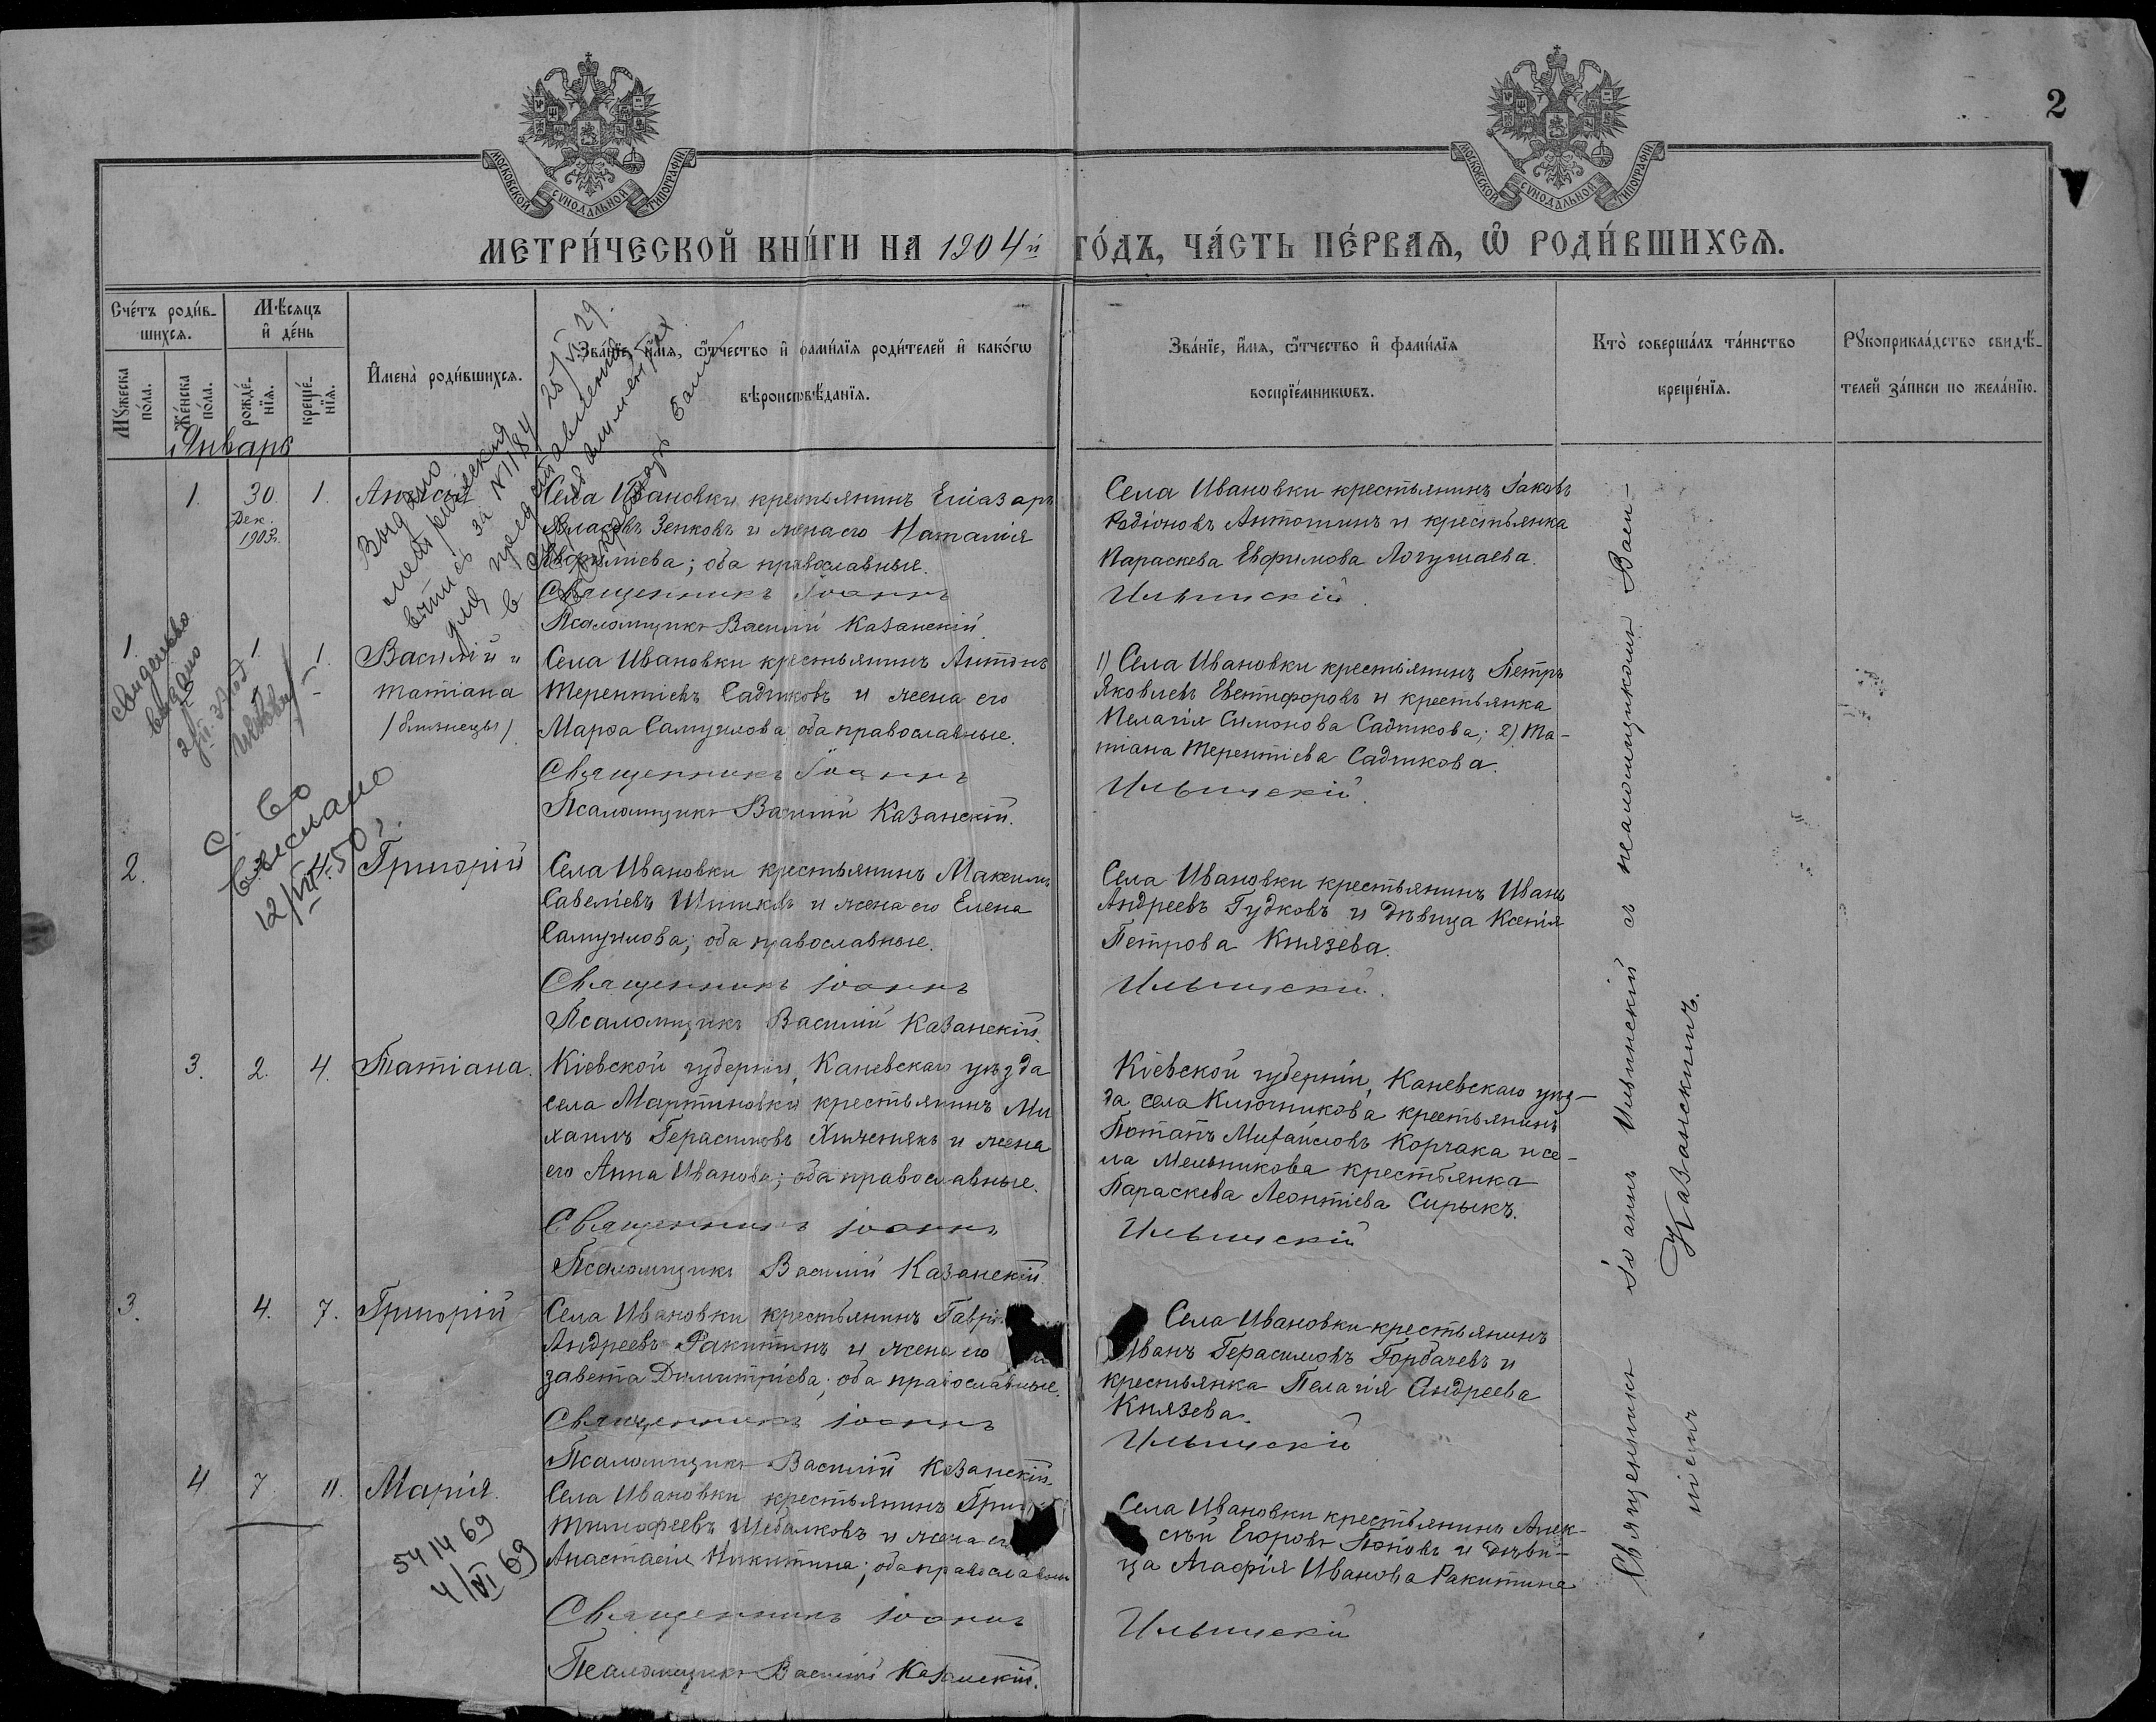 2
МОСКОВСКОЙ СѴНОДАЛЬНОЙ ТИПОГРАФІИ
МОСКОВСКОЙ СѴНОДАЛЬНОЙ ТИПОГРАФІИ
МЕТРИ́ЧЕСКОЙ КНИ́ГИ НА 1904й ГО́ДЪ, ЧА́СТЬ ПЕ́РВАѦ, Ѡ РОДИ́ВШИХСѦ.
Счéтъ роди́в-
шихсѧ.
Мꙋжеска
по́ла.
Же́нска
по́ла.
Мѣ́сѧцъ
и҆ де́нь
рожде́-
нїѧ.
креще́-
нїѧ.
И҆мена̀ роди́вшихсѧ.
Зва́нїе, и҆́мѧ, ѻ҆́тчество и҆ фами́лїѧ роди́телей и҆ како́гѡ
вѣроисповѣ́данїѧ.
Зва́нїе, и҆́мѧ, ѻ҆́тчество и҆ фами́лїѧ
воспрїе́мникѡвъ.
Кто̀ соверша́лъ та́инство
креще́нїѧ.
Рꙋкоприкла́дство свидѣ́-
телей за́писи по жела́нїю.
Январь
1. 30. 1.
Дек.
1903г.
Села Ивановки крестьянинъ Еліазаръ
Власовъ Зенковъ и жена его Наталія
оба православные.
Священникъ Іоаннъ
Псаломщикъ Василій Казанскій
Села Ивановки крестьянинъ Іаковъ
Родіоновъ Антошинъ и крестьянка
Параскева Евфимова Логушаева.
Ильинскій
Выдано
за № 1184
25/VI 29.
1. 1. 1. Василій и
Татіана
/близнецы/
Села Ивановки крестьянинъ Антонъ
Терентіевъ Садчиковъ и жена его
Марѳа Самуилова; оба православные.
Священникъ Іоаннъ
Псаломщикъ Василій Казанскій.
1) Села Ивановки крестьянинъ Петръ
Яковлевъ Евстифоровъ и крестьянка
Пелагія Симонова Садчикова; 2) Та-
тіана Терентіева Садчикова.
Ильинскій.
С-во
выслано
12/VII 50 г.
2. 4. Григорій
Села Ивановки крестьянинъ Максимъ
Савеліевъ Шишковъ и жена его Елена
Самуилова; оба православные.
Священникъ Іоаннъ
Псаломщикъ Василій Казанскій.
Села Ивановки крестьянинъ Иванъ
Андреевъ Гудковъ и дѣвица Ксенія
Петрова Князева.
Ильинскій.
3. 2. 4. Татіана.
Кіевской губерніи, Каневскаго уѣзда
села Мартиновки крестьянинъ Ми
хаилъ Герасимовъ и жена
его Анна Иванова; оба православные.
Священникъ Іоаннъ
Псаломщикъ Василій Казанскій.
Кіевской губерніи, Каневскаго уѣз-
да села Ключникова крестьянинъ
Потапъ Михайловъ Корчака и се-
ла Мельникова крестьянка
Параскева Леонтіева Сирыкъ.
Ильинскій
3. 4. 7. Григорій
Села Ивановки крестьянинъ Гаврі
Андреевъ Ракитинъ и жена его
завета Димитріева; оба православные.
Священникъ Іоаннъ
Псаломщикъ Василій Казанскій.
Села Ивановки крестьянинъ
Иванъ Герасимовъ Горбачевъ и
крестьянка Пелагія Андреева
Князева.
Ильинскій
4 7. 11. Марія.
Села Ивановки крестьянинъ Григ
Тимофеевъ Шебалковъ и жена ег
Анастасія Никитина; оба православны
Священникъ Іоаннъ
Псаломщикъ Василій Казанскій.
Села Ивановки крестьянинъ Алек-
сѣй Егоровъ Поповъ и дѣви-
ца Агафія Иванова Ракитина
Ильинскій
541469
4/VI 69
Священникъ Іоаннъ Ильинскій съ псаломщикомъ Васи-
ліемъ Казанскимъ.